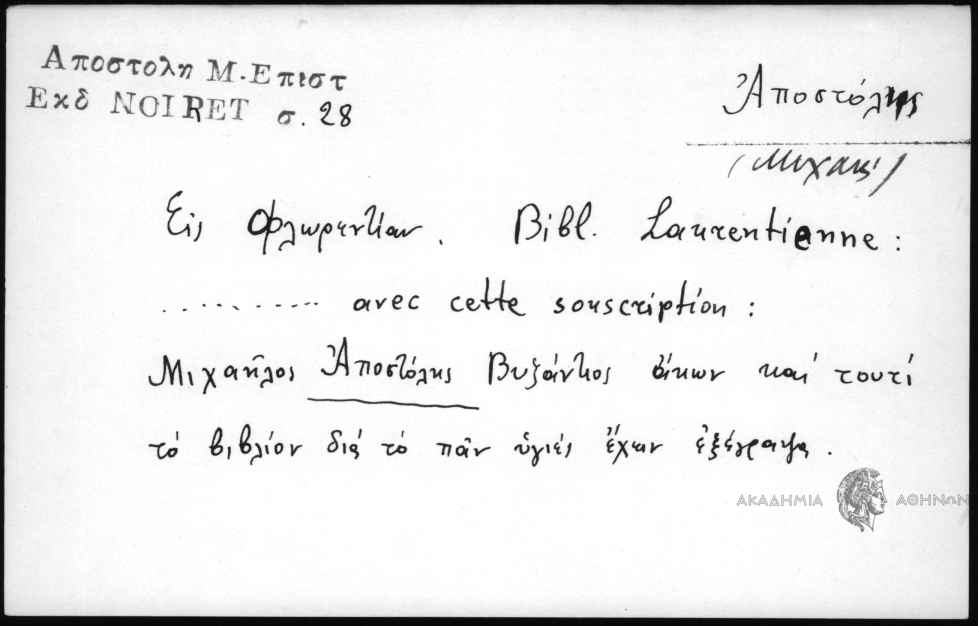 Αποστολη Μ. Επιστ
Εκδ NOIRET σ. 28
Ἀποστόλης
(Μιχαήλ)
Εἰς Φλωρεντίαν. Bibl. Laurentienne :
.......... avec cette souscription :
Μιχαῆλος Ἀποστόλης Βυζάντιος ἄκων καί τουτί
τό βιβλίον διά τό πᾶν ὑγιές ἔχειν ἐξέγραψα.
ΑΚΑΔΗΜΙΑ ΑΘΗΝΩΝ